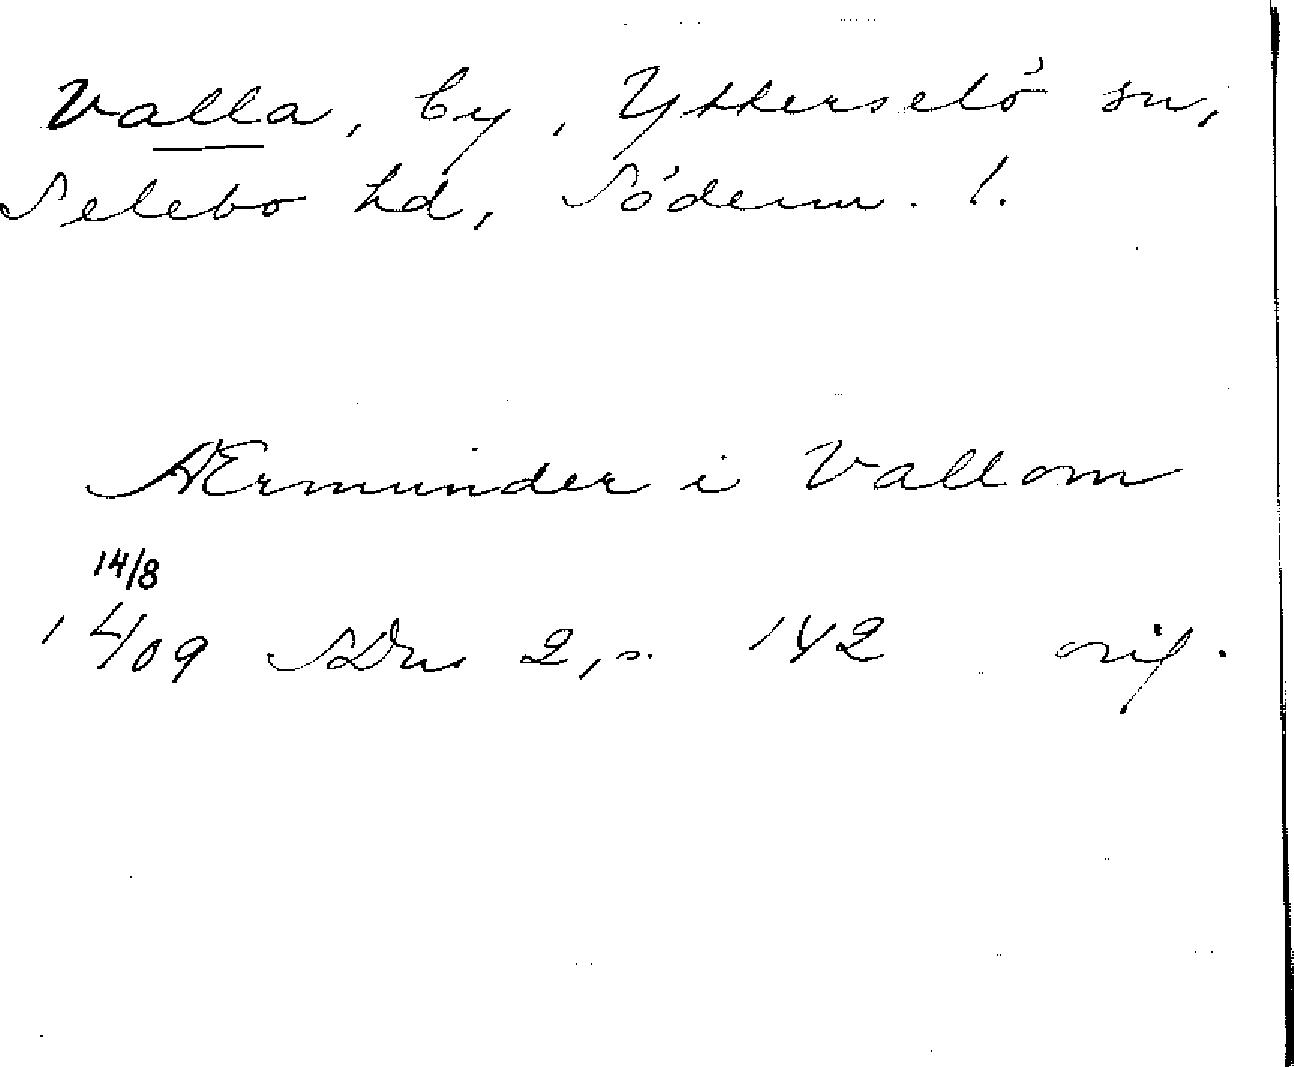 Valla, by, Ytterselö sn,
Selebo hd, Söderm. l.
Ærmunder i Vallom
14/8
14/09 SDns 2, s. 142 orig.